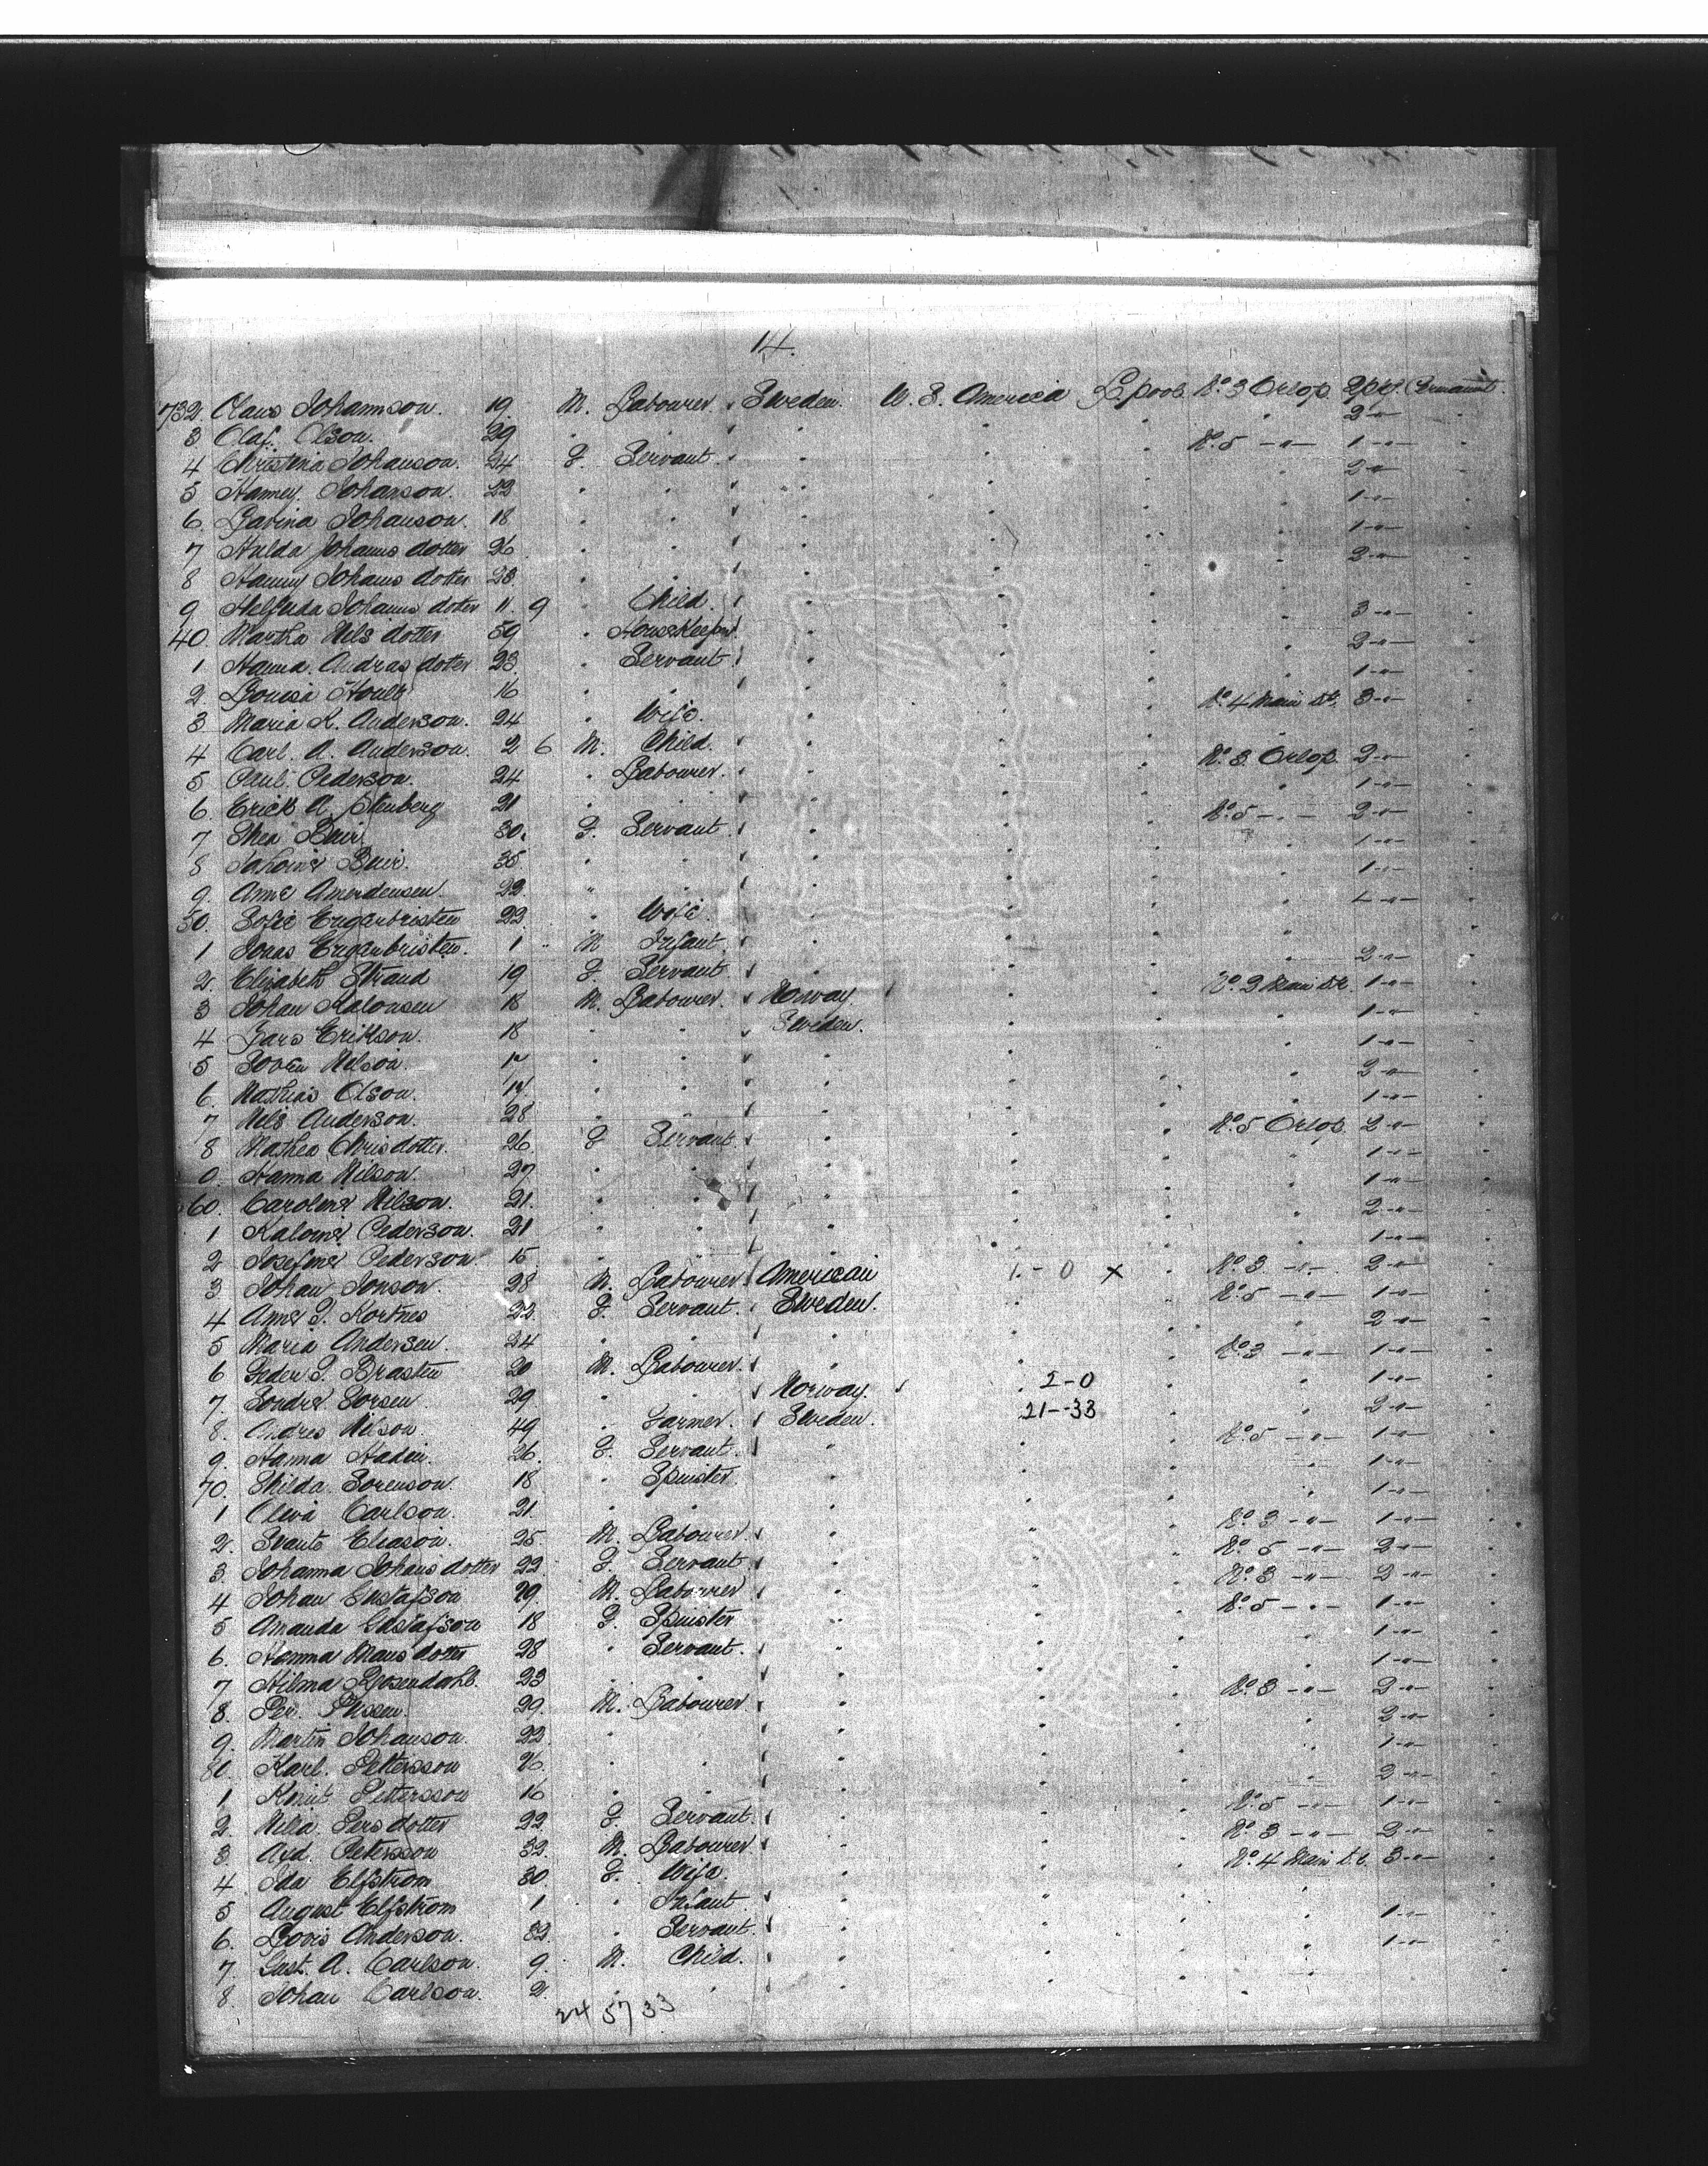 14.
732 Claus Johannson. 19. M. Labourer. Sweden. U.S. America L'pool. No. 3 Orlop. 2 pcs. Permanent.
3 Olaf. Olson. 29 " " " " " " 2 -"- "
4 Christina Johanson. 24 F. Servant. " " " No. 5 -"- 1 -"- "
5 Hanney. Johanson. 22 " " " " " " 2 -"- "
6. Johanson. 18 " " " " " " 1 -"- "
7 Hulda Johanns dotter 26 " " " " " " 1 -"- "
8 Hanny Johanns dotter 28. " " " " " " 2 -"- "
9 Johanns dotter 11. 9 " Child. " " " "
40. Martha Nels dotter 59 " Housekeeper " " " " 3 -"- "
1 Hanna. Andras dotter 23. " Servant " " " " 2 -"- "
2 Louisa 16 " " " " " " 1 -"- "
3 Maria K. Anderson. 24 " Wife. " " " No. 4 Main Dk. 3 -"- "
4 Carl. A. Anderson. 2 6 M. Child. " " "
5 Pederson. 24 " Labourer. " " " No. 3. Orlop. 2 -"- "
6. Erick A. Stenberg 21 " " " " " " 1 -"- "
7 Thea 30. F. Servant. " " " No. 5 -"- 2 -"- "
8 35. " " " " " " 1 -"- "
9. Anne Amendensen 22. " " " " " " 1 -"- "
50. Sofie 22. " Wife. " " " " "
1 Jonas 1 " M Infant. " " " "
2. Elizabeth Strand 19 F Servant. " " " " 2 -"- "
3 Johan 18 M. Labourer. Norway. " " No. 2 Main Dk. 1 -"- "
4 Lars Erikson. 18 " " Sweden. " " " 1 -"- "
5 Nelson. " " " " " " 1 -"- "
6. Mathias Olson. " " " " " " 2 -"- "
7 Nels Anderson. 28 " " " " " " 1 -"- "
8 Mathea Chrisdotter. 26. F Servant. " " " No. 5 Orlop. 2 -"- "
Hanna Nilson. 27 " " " " " " 1 -"- "
60. Caroline Nilson. 21. " " " " " " 1 -"- "
1 Pederson. 21 " " " " " " 2 -"- "
2 Josefine Pederson. 15 " " " " " " 1 -"- "
3 Johan Jonson. 28 M. Labourer. American 1 - 0 X " No. 3 -"- 2 -"- "
4 Anne 22. F. Servant. Sweden. " " No. 5 -"- 1 -"- "
5 Maria Andersen. 24 " " " " " " 2 -"- "
6 Peder 20 M. Labourer. " " " No. 3 -"- 1 -"- "
7. 29. " " Norway. 2-0 " " 1 -"- "
8. Andres Nilson. 49 " Farmer. Sweden. 21--33 " " 2 -"- "
9. Hanna 26. F. Servant. " " " No. 5 -"- 1 -"- "
70. Sorenson. 18 " Spinster. " " " " 1 -"- "
1 Carlson. 21. " " " " " " 1 -"- "
2. Svante Eliason. 25. M. Labourer. " " " No. 3 -"- 1 -"- "
3. Johanna Johans dotter 22. F. Servant. " " " No. 5 -"- 2 -"- "
4 Johan Gustafson 29. M. Labourer " " " No. 3 -"- 2 -"- "
5 Amanda Gustafson 18 F. Spinster " " " No. 5 -"- 1 -"- "
6. Hanna Mans dotter 28 " Servant. " " " " 1 -"- "
7 Hilma 23 " " " " " " 1 -"- "
8. Per. 29. M. Labourer. " " " No. 3 -"- 2 -"- "
9. Martin Johanson. 22. " " " " " " 2 -"- "
80. Karl. Pettersson 26. " " " " " " 1 -"- "
1 Knut Pettersson 16 " " " " " " 2 -"- "
2. Pers dotter 22. F. Servant. " " " No. 5 -"- 1 -"- "
3. Petersson 32. M. Labourer " " " No. 3 -"- 2 -"- "
4 Ida Elfstrom 30. F. Wife. " " " No. 4 Main Dk. 3 -"- "
5 August Elfstrom 1 " Infant. " " " "
6. Anderson. " Servant. " " " " 1 -"- "
7. Gust. A. Carlson. 9. M. Child. " " " " 1 -"- "
8. Johan Carlson. 2. " " " " " "
24 57 33